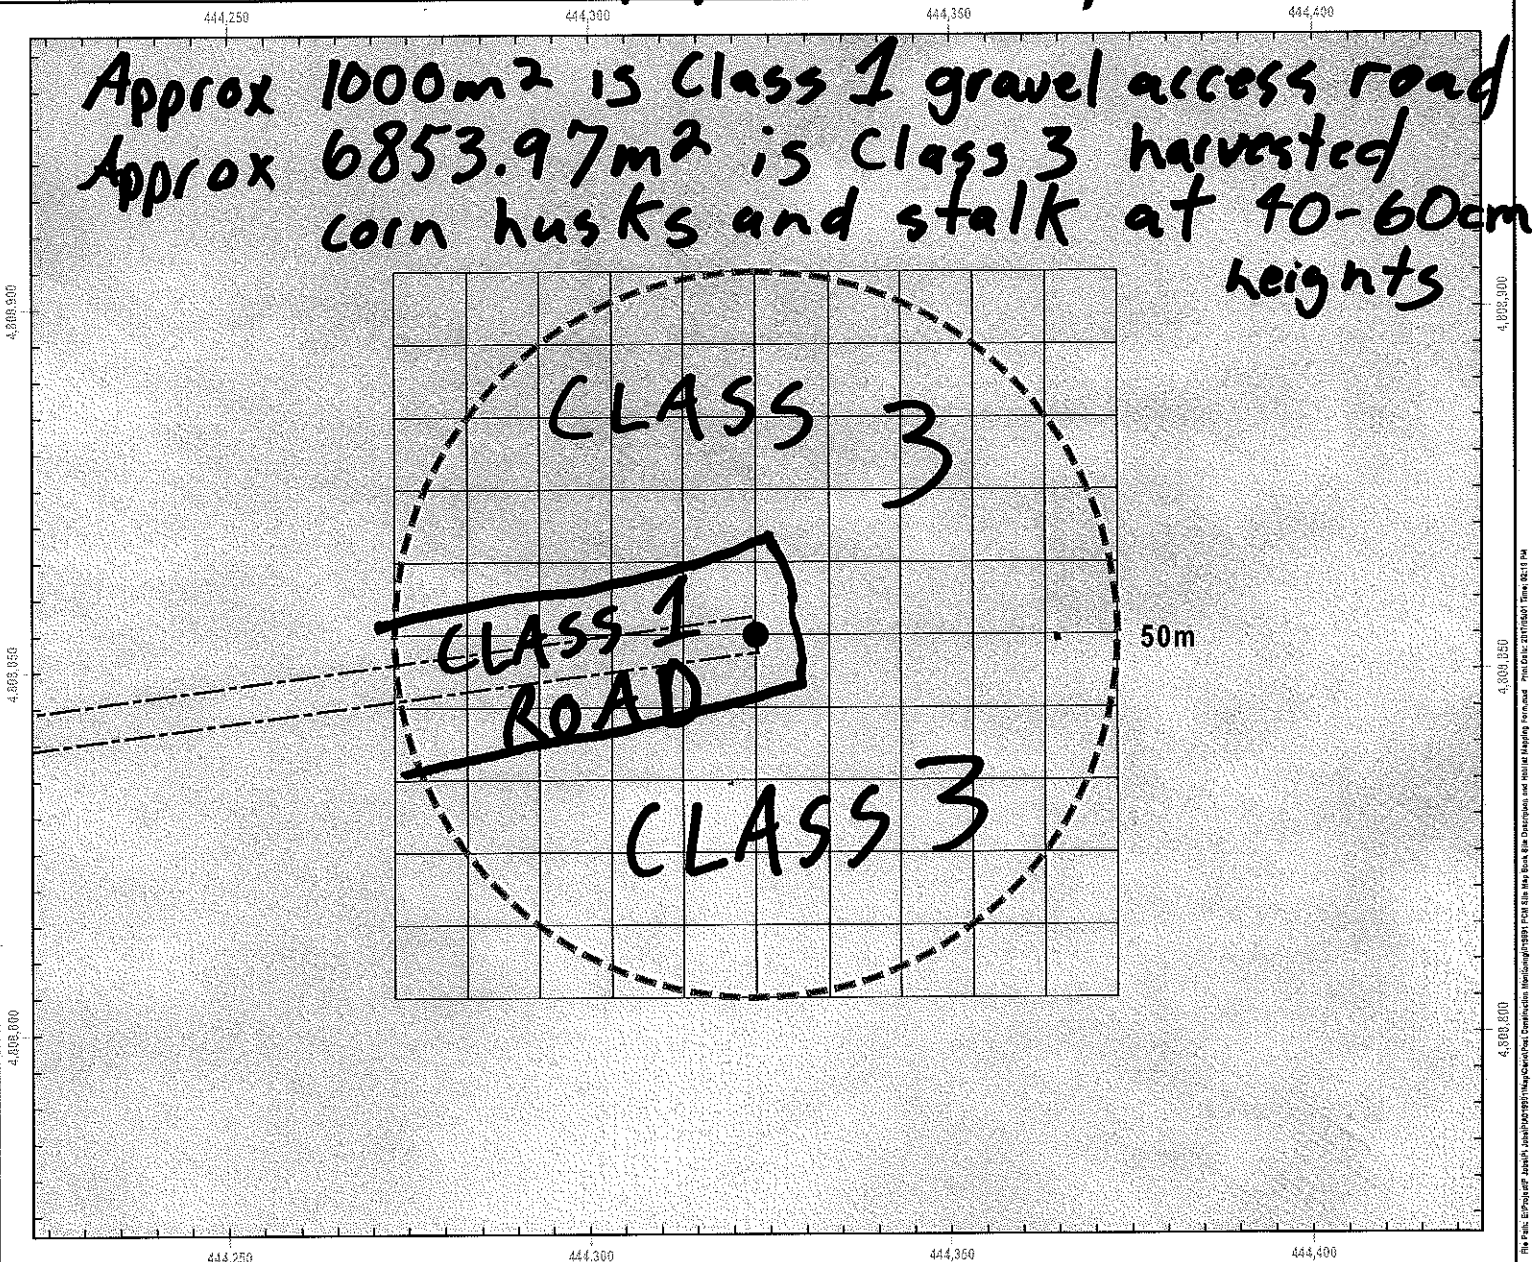 444,250 444,300 444,350 444,400
Approx 1000m² is Class 1 gravel access road
Approx 6853.97m² is Class 3 harvested
corn husks and stalk at 40-60cm
heights
4,808,900 4,808,900
CLASS 3
CLASS 1
ROAD
50m
4,808,850 4,808,850
CLASS 3
4,808,800 4,808,800
444,250 444,300 444,350 444,400